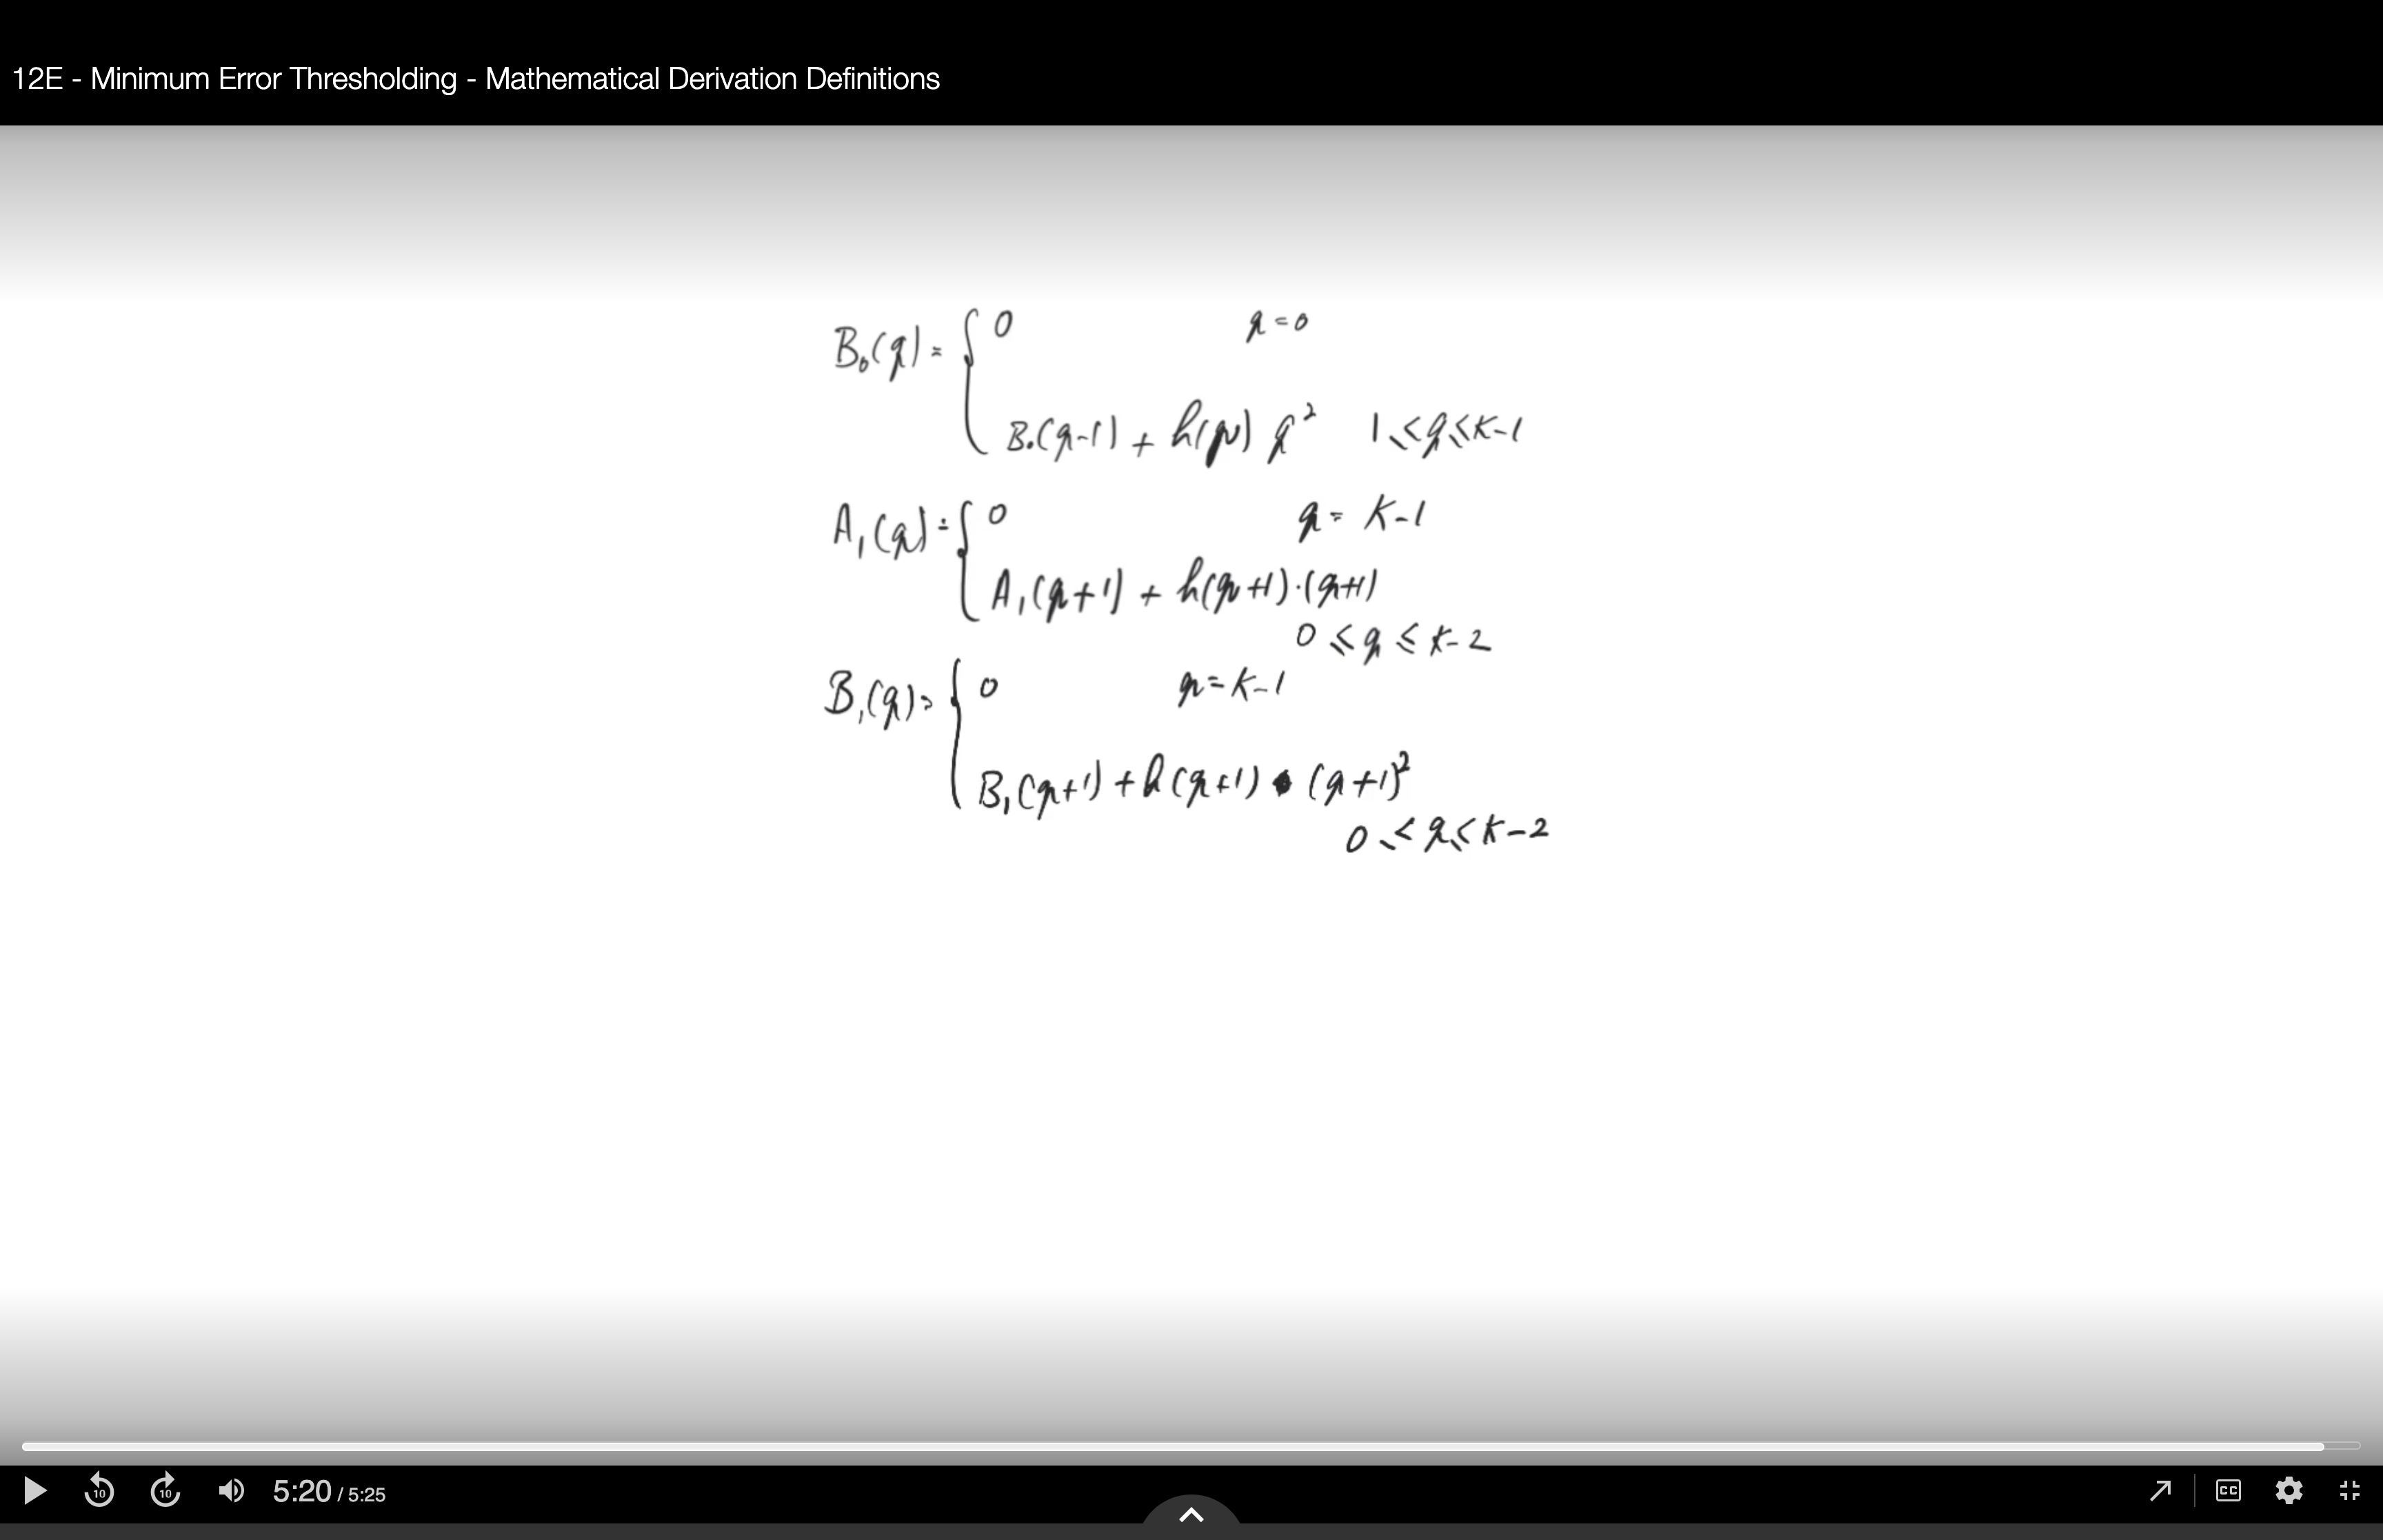 12E - Minimum Error Thresholding - Mathematical Derivation Definitions
B₀(q) = { 0 q = 0
B₀(q-1) + h(q) q² 1 ≤ q ≤ K-1
A₁(q) = { 0 q = K-1
A₁(q+1) + h(q+1)·(q+1)
0 ≤ q ≤ K-2
B₁(q) = { 0 q = K-1
B₁(q+1) + h(q+1) • (q+1)²
0 ≤ q ≤ K-2
10 10 5:20 / 5:25 CC